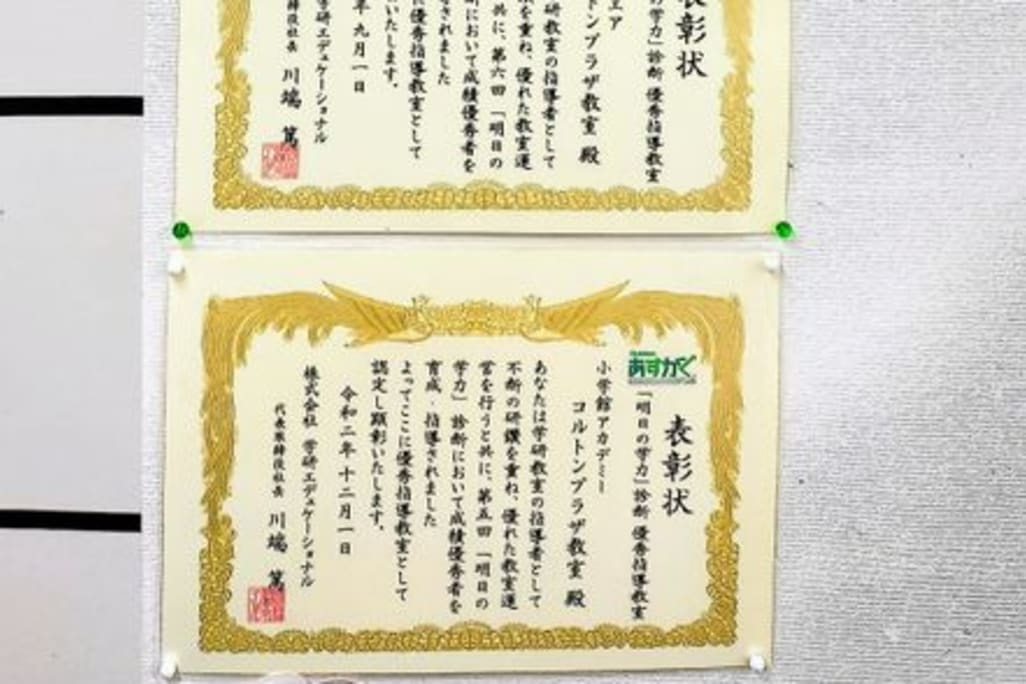 表彰状
の学力」診断 優秀指導教室
エア
トンプラザ教室 殿
研教室の指導者として
を重ね、優れた教室運
共に、第六回「明日の
断において成績優秀者を
されました
に優秀指導教室として
いたします。
年九月一日
学研エデュケーショナル
締役社長 川端 篤
あすがく
表彰状
「明日の学力」診断 優秀指導教室
小学館アカデミー
コルトンプラザ教室 殿
あなたは学研教室の指導者として
不断の研鑽を重ね、優れた教室運
営を行うと共に、第五回「明日の
学力」診断において成績優秀者を
育成・指導されました
よってここに優秀指導教室として
認定し顕彰いたします。
令和二年十二月一日
株式会社 学研エデュケーショナル
代表取締役社長 川端 篤